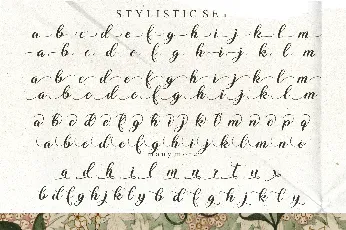 STYLISTIC SET
a b c d e f g h i j k l m
a b c d e f g h i j k l m
a b c d e f g h i j k l m
a b c d e f g h i j k l m
a b c d e f g h i j k l m n o p q
a b c d e f g h i j k l m n o
many more
a d h i l m u r t u x
b d f g h j k l y b d f g h j k l y